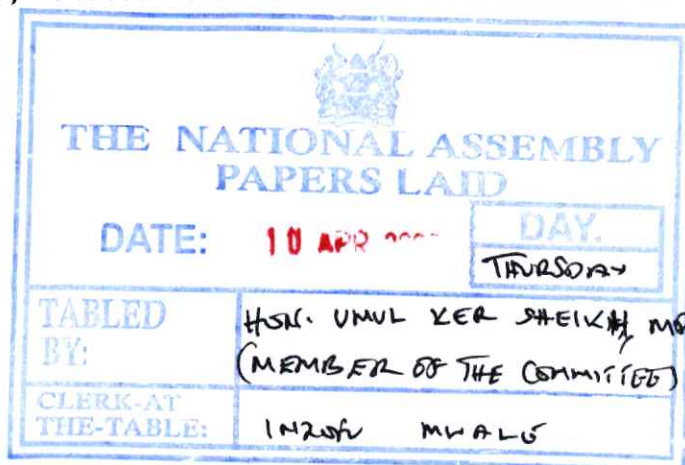 THE NATIONAL ASSEMBLY
PAPERS LAID
DATE: 10 APR
DAY.
THURSDAY
TABLED
BY:
HON. UMUL KER SHEIKH,
(MEMBER OF THE COMMITTEE)
CLERK-AT
THE-TABLE:
MWALE